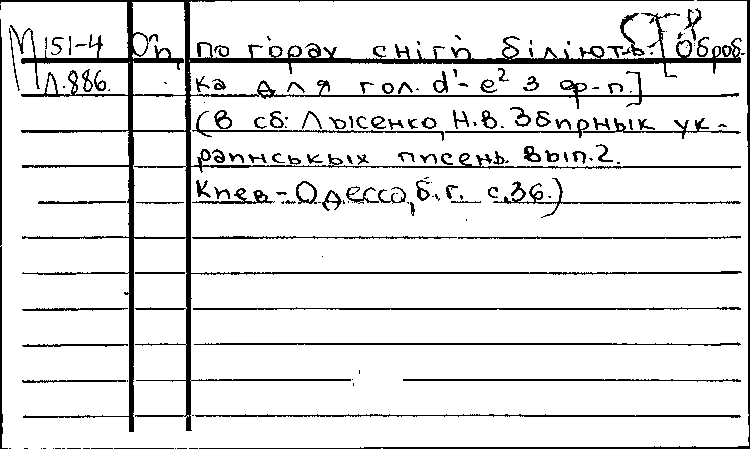 М 151-4 Ой, по горах сніги біліють. [Оброб-
Л.886. ка для гол. d¹-e² з ф-п.]
(в сб: Лысенко, Н.В. Збирнык ук-
раинськых писень. Вып.2.
Киев-Одесса, б.г. с.36.)